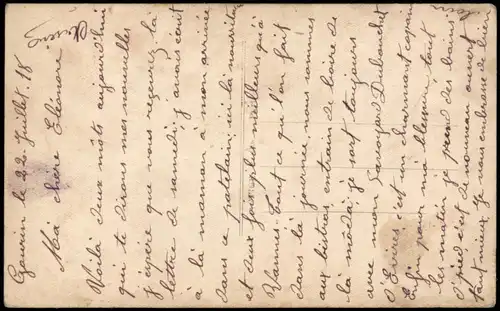 Gourin le 22 Juillet. 18
Ma chère Eléonore
Voilà deux môts aujourd'hui
qui te dirons mes nouvelles
j'éspère que vous reçevrez la
lettre de samedi, j'anoncent
à la maman à mon arrivée
dans ce patelain; ici la nourriture
et deux fois plus meilleurs qu'à
Vannes. Tout ce qu'on fait
dans la journée nous sommes
aux bistros entrain de boire de
la môda; je sort toujours
avec mon Savoyard Dubouchet
d'Evires c'est un charmant copain
Enfin pour ma blessure tout
les matin je prend des bains
d'pied c'est de nouveau ouvert
tant mieux. Je vous embrasse de bien
loin